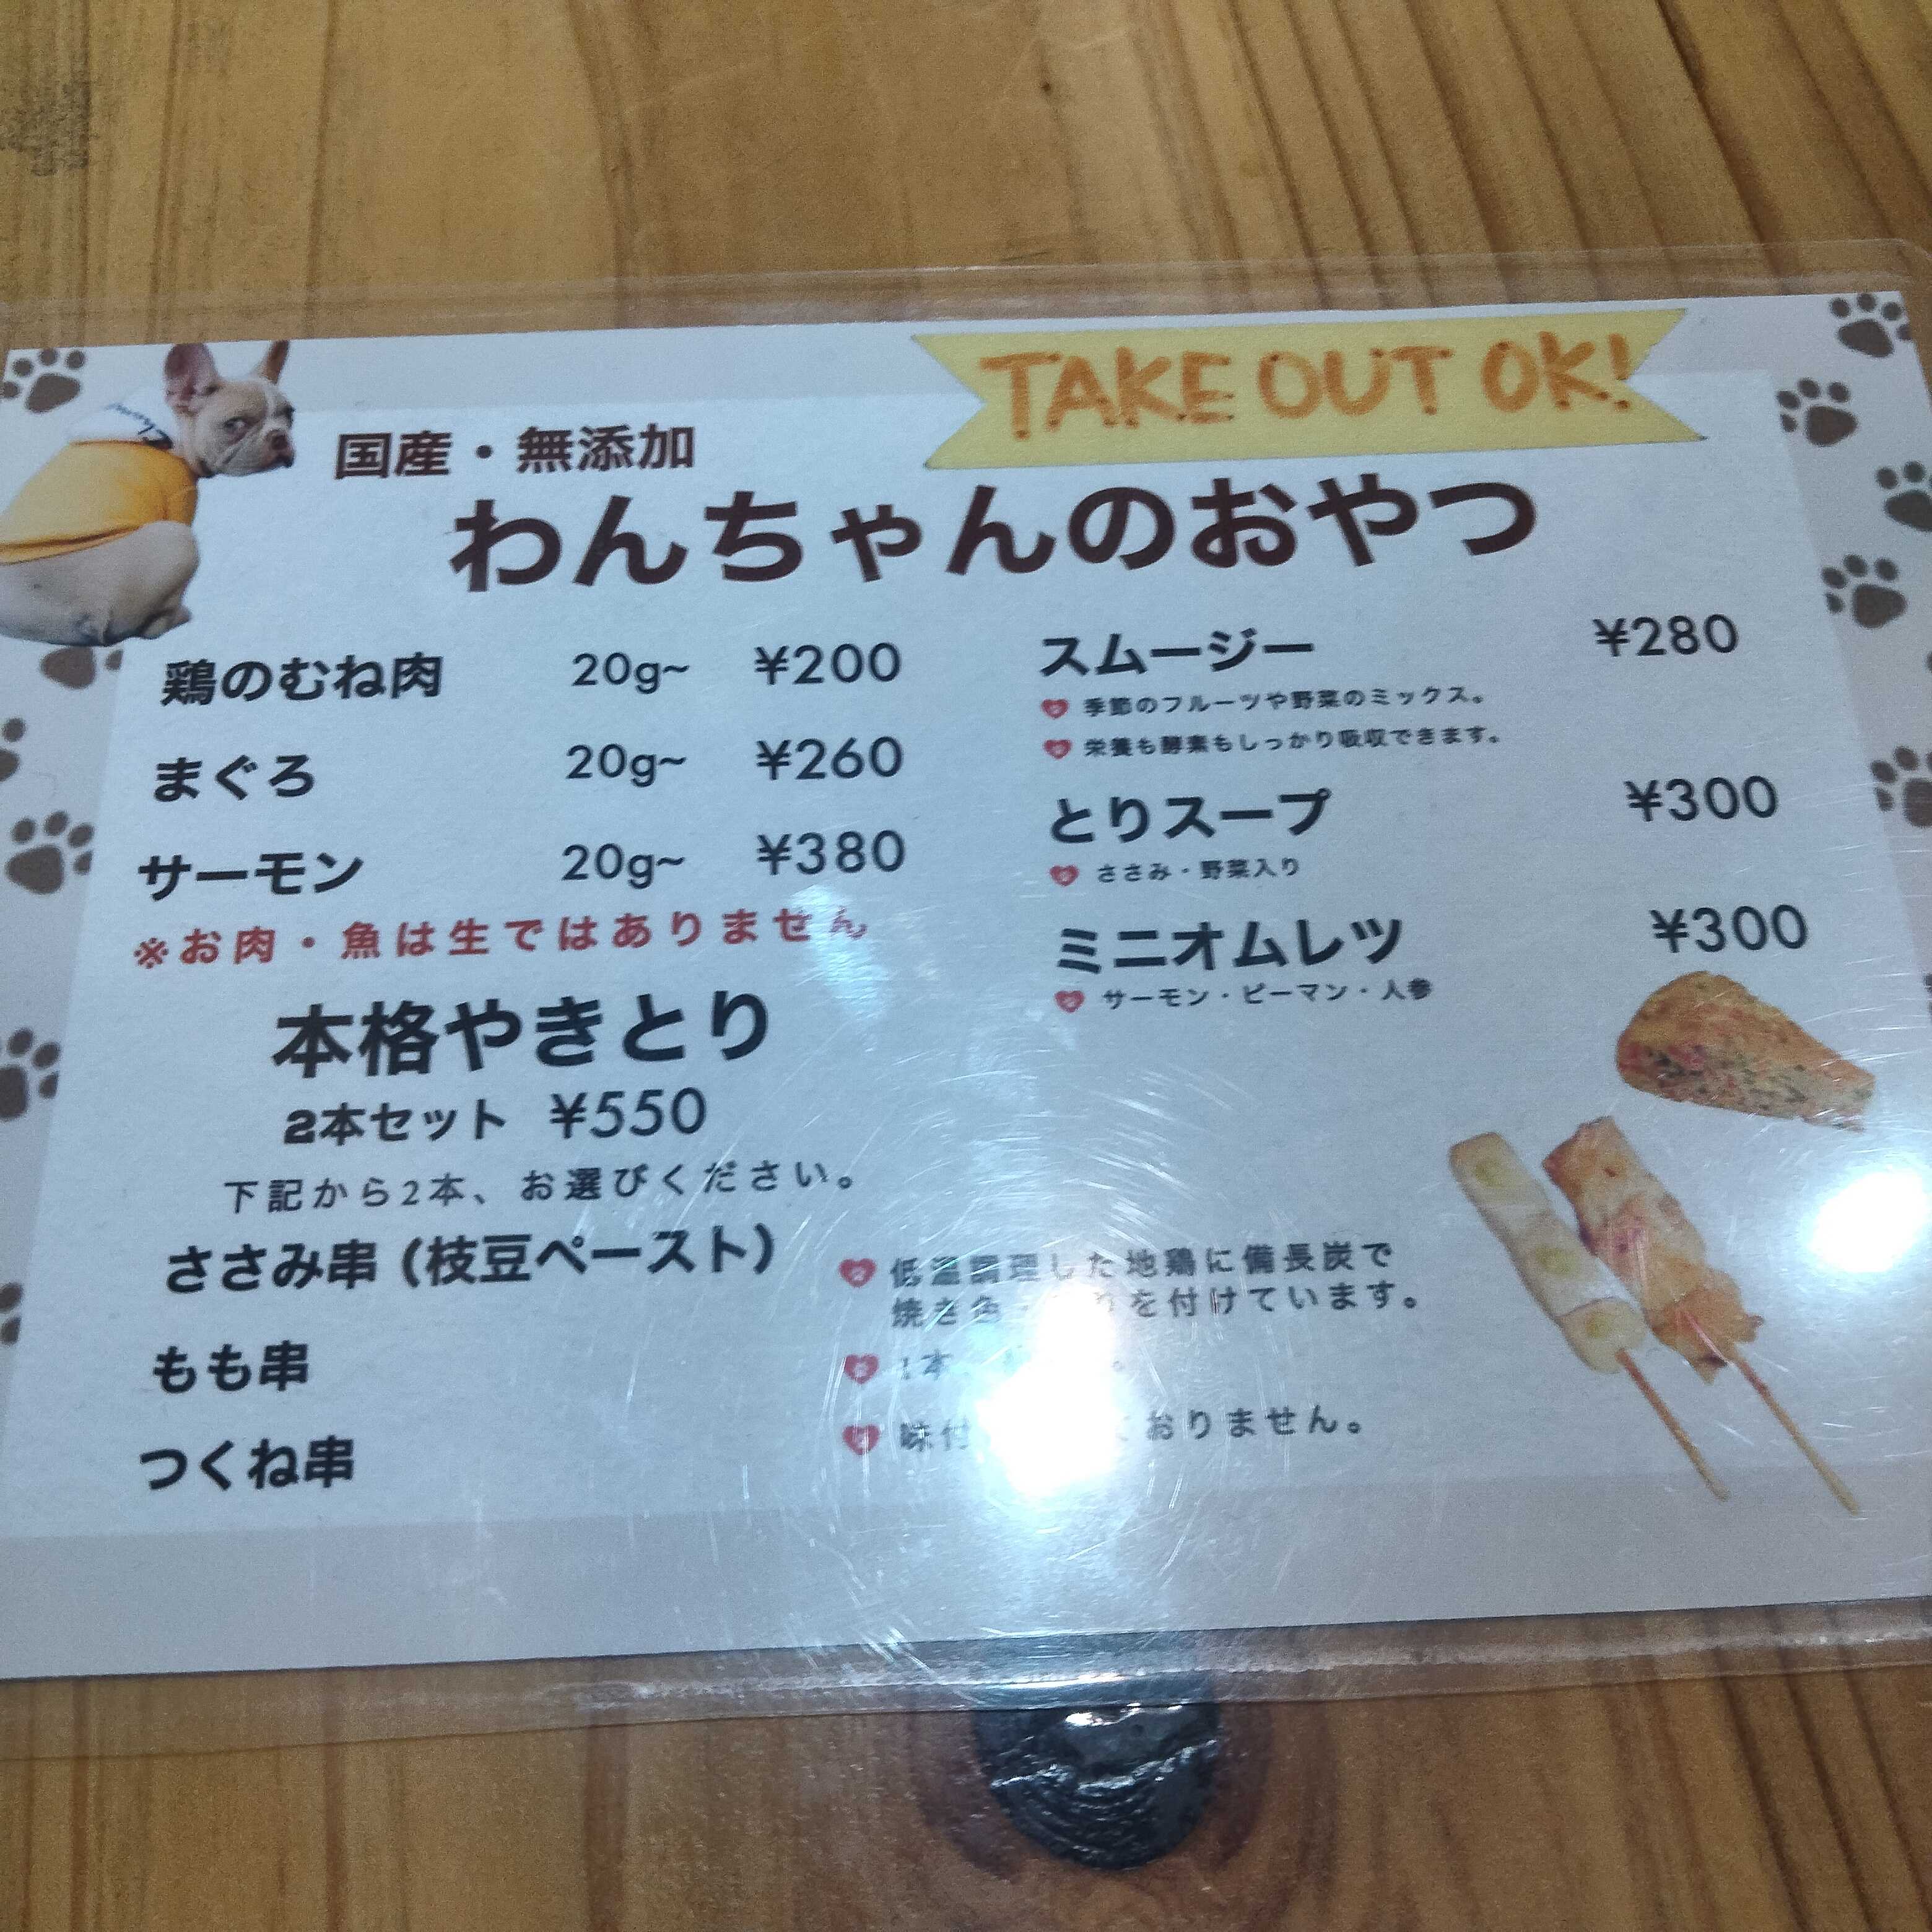 TAKE OUT OK!
国産・無添加
わんちゃんのおやつ
鶏のむね肉 20g~ ¥200
まぐろ 20g~ ¥260
サーモン 20g~ ¥380
※お肉・魚は生ではありません
本格やきとり
2本セット ¥550
下記から2本、お選びください。
ささみ串(枝豆ペースト)
もも串
つくね串
スムージー ¥280
季節のフルーツや野菜のミックス。
栄養も酵素もしっかり吸収できます。
とりスープ ¥300
ささみ・野菜入り
ミニオムレツ ¥300
サーモン・ピーマン・人参
低温調理した地鶏に備長炭で
焼き色 を付けています。
1本
味付 おりません。